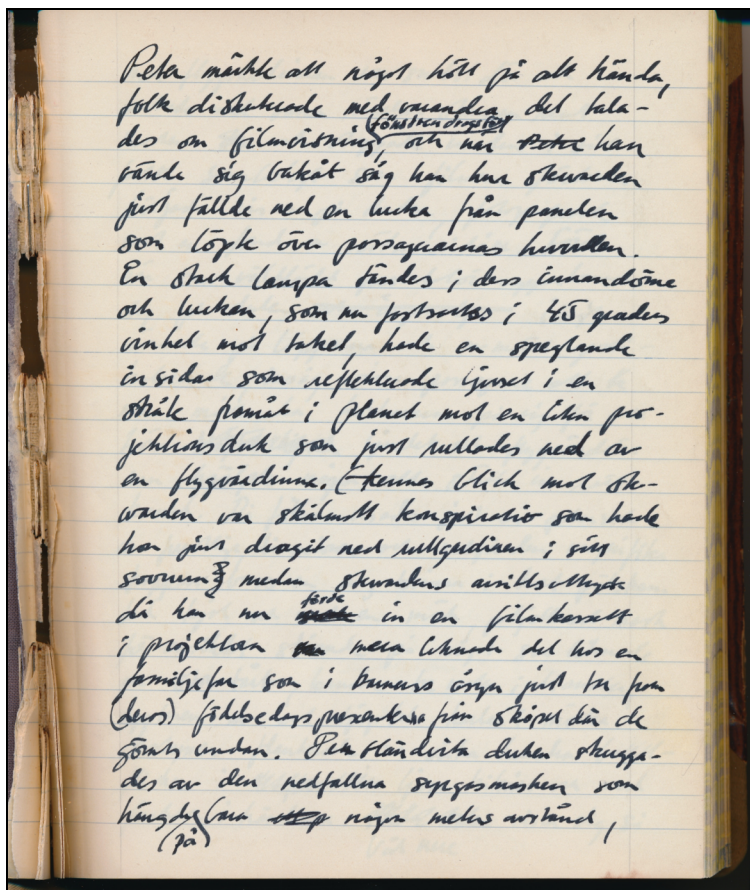 Peter märkte att något höll på att hända,
folk diskuterade med varandra, det tala-
des om filmvisning, (fönstren drogs för) och när Peter han
vände sig bakåt såg han hur stewarden
just fällde ned en lucka från panelen
som löpte över passagerarnas huvuden.
En stark lampa tändes i dess innandöme
och luckan, som nu fortsattes i 45 graders
vinkel mot taket, hade en speglande
insida som reflekterade ljuset i en
stråk framåt i planet mot en liten pro-
jektionsduk som just rullades ned av
en flygvärdinna. (Hennes blick mot ste-
warden var skälmskt konspirativ som hade
hon just dragit ned rullgardinen i sitt
sovrum) medan stewardens ansiktsuttryck
då han nu förde in en filmkassett
i projektorn mera liknade det hos en
familjefar som i barnens åsyn just tar fram
(deras) födelsedagspresenterna från skåpet där de
gömts undan. Den ständiga duken skugga-
des av den nedfallna syrgasmasken som
hängde bara (på) några meters avstånd,